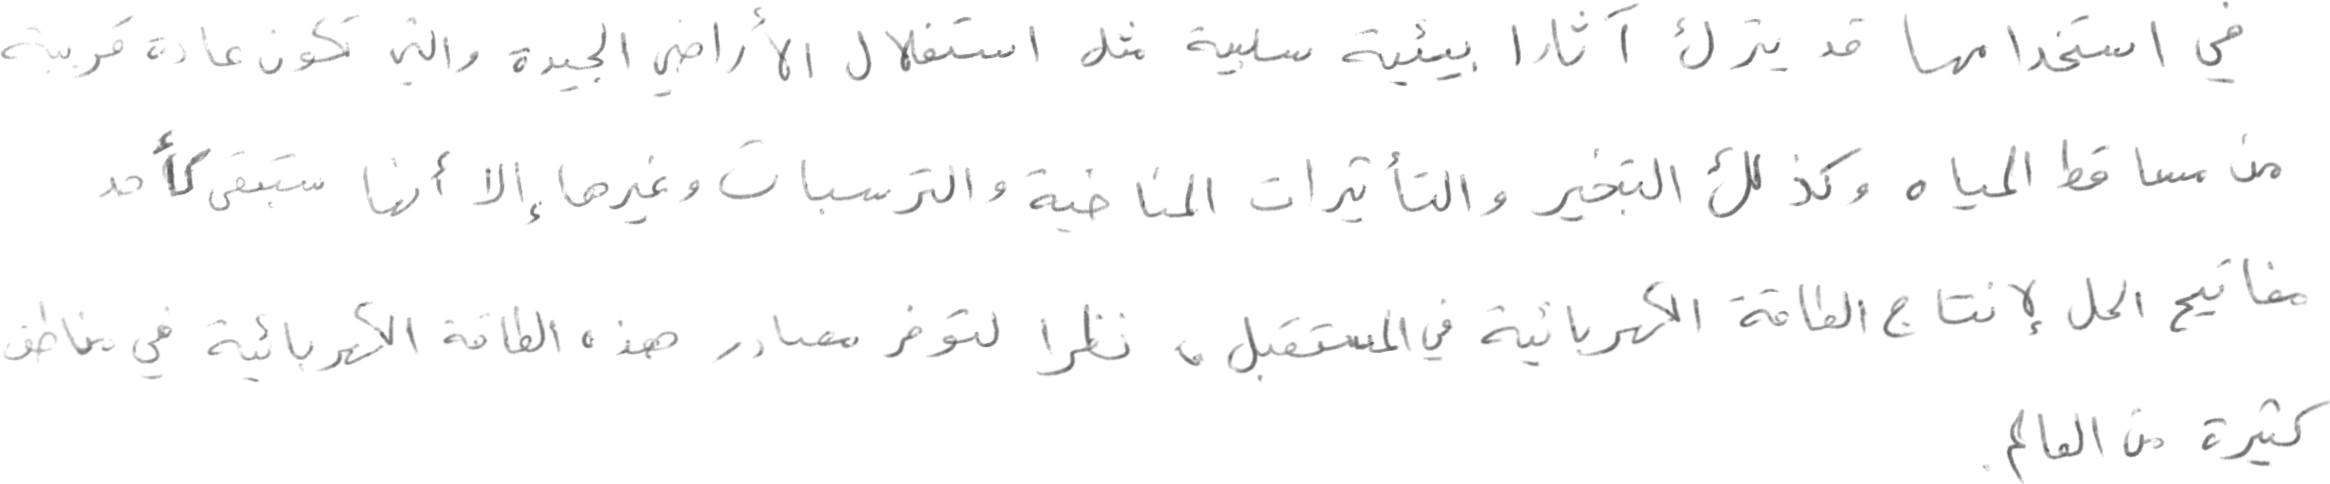 في استخدامها قد يترك آثارا بيئية سلبية مثل استغلال الأراضي الجيدة والتي تكون عادة قريبة
من مساقط المياه وكذلك التبخير والتأثيرات المناخية والترسبات وغيرها إلا أنها ستبقى كأحد
مفاتيح الحل لإنتاج الطاقة الكهربائية في المستقبل، نظرا لتوفر مصادر هذه الطاقة الكهربائية في مناطق
كثيرة من العالم.